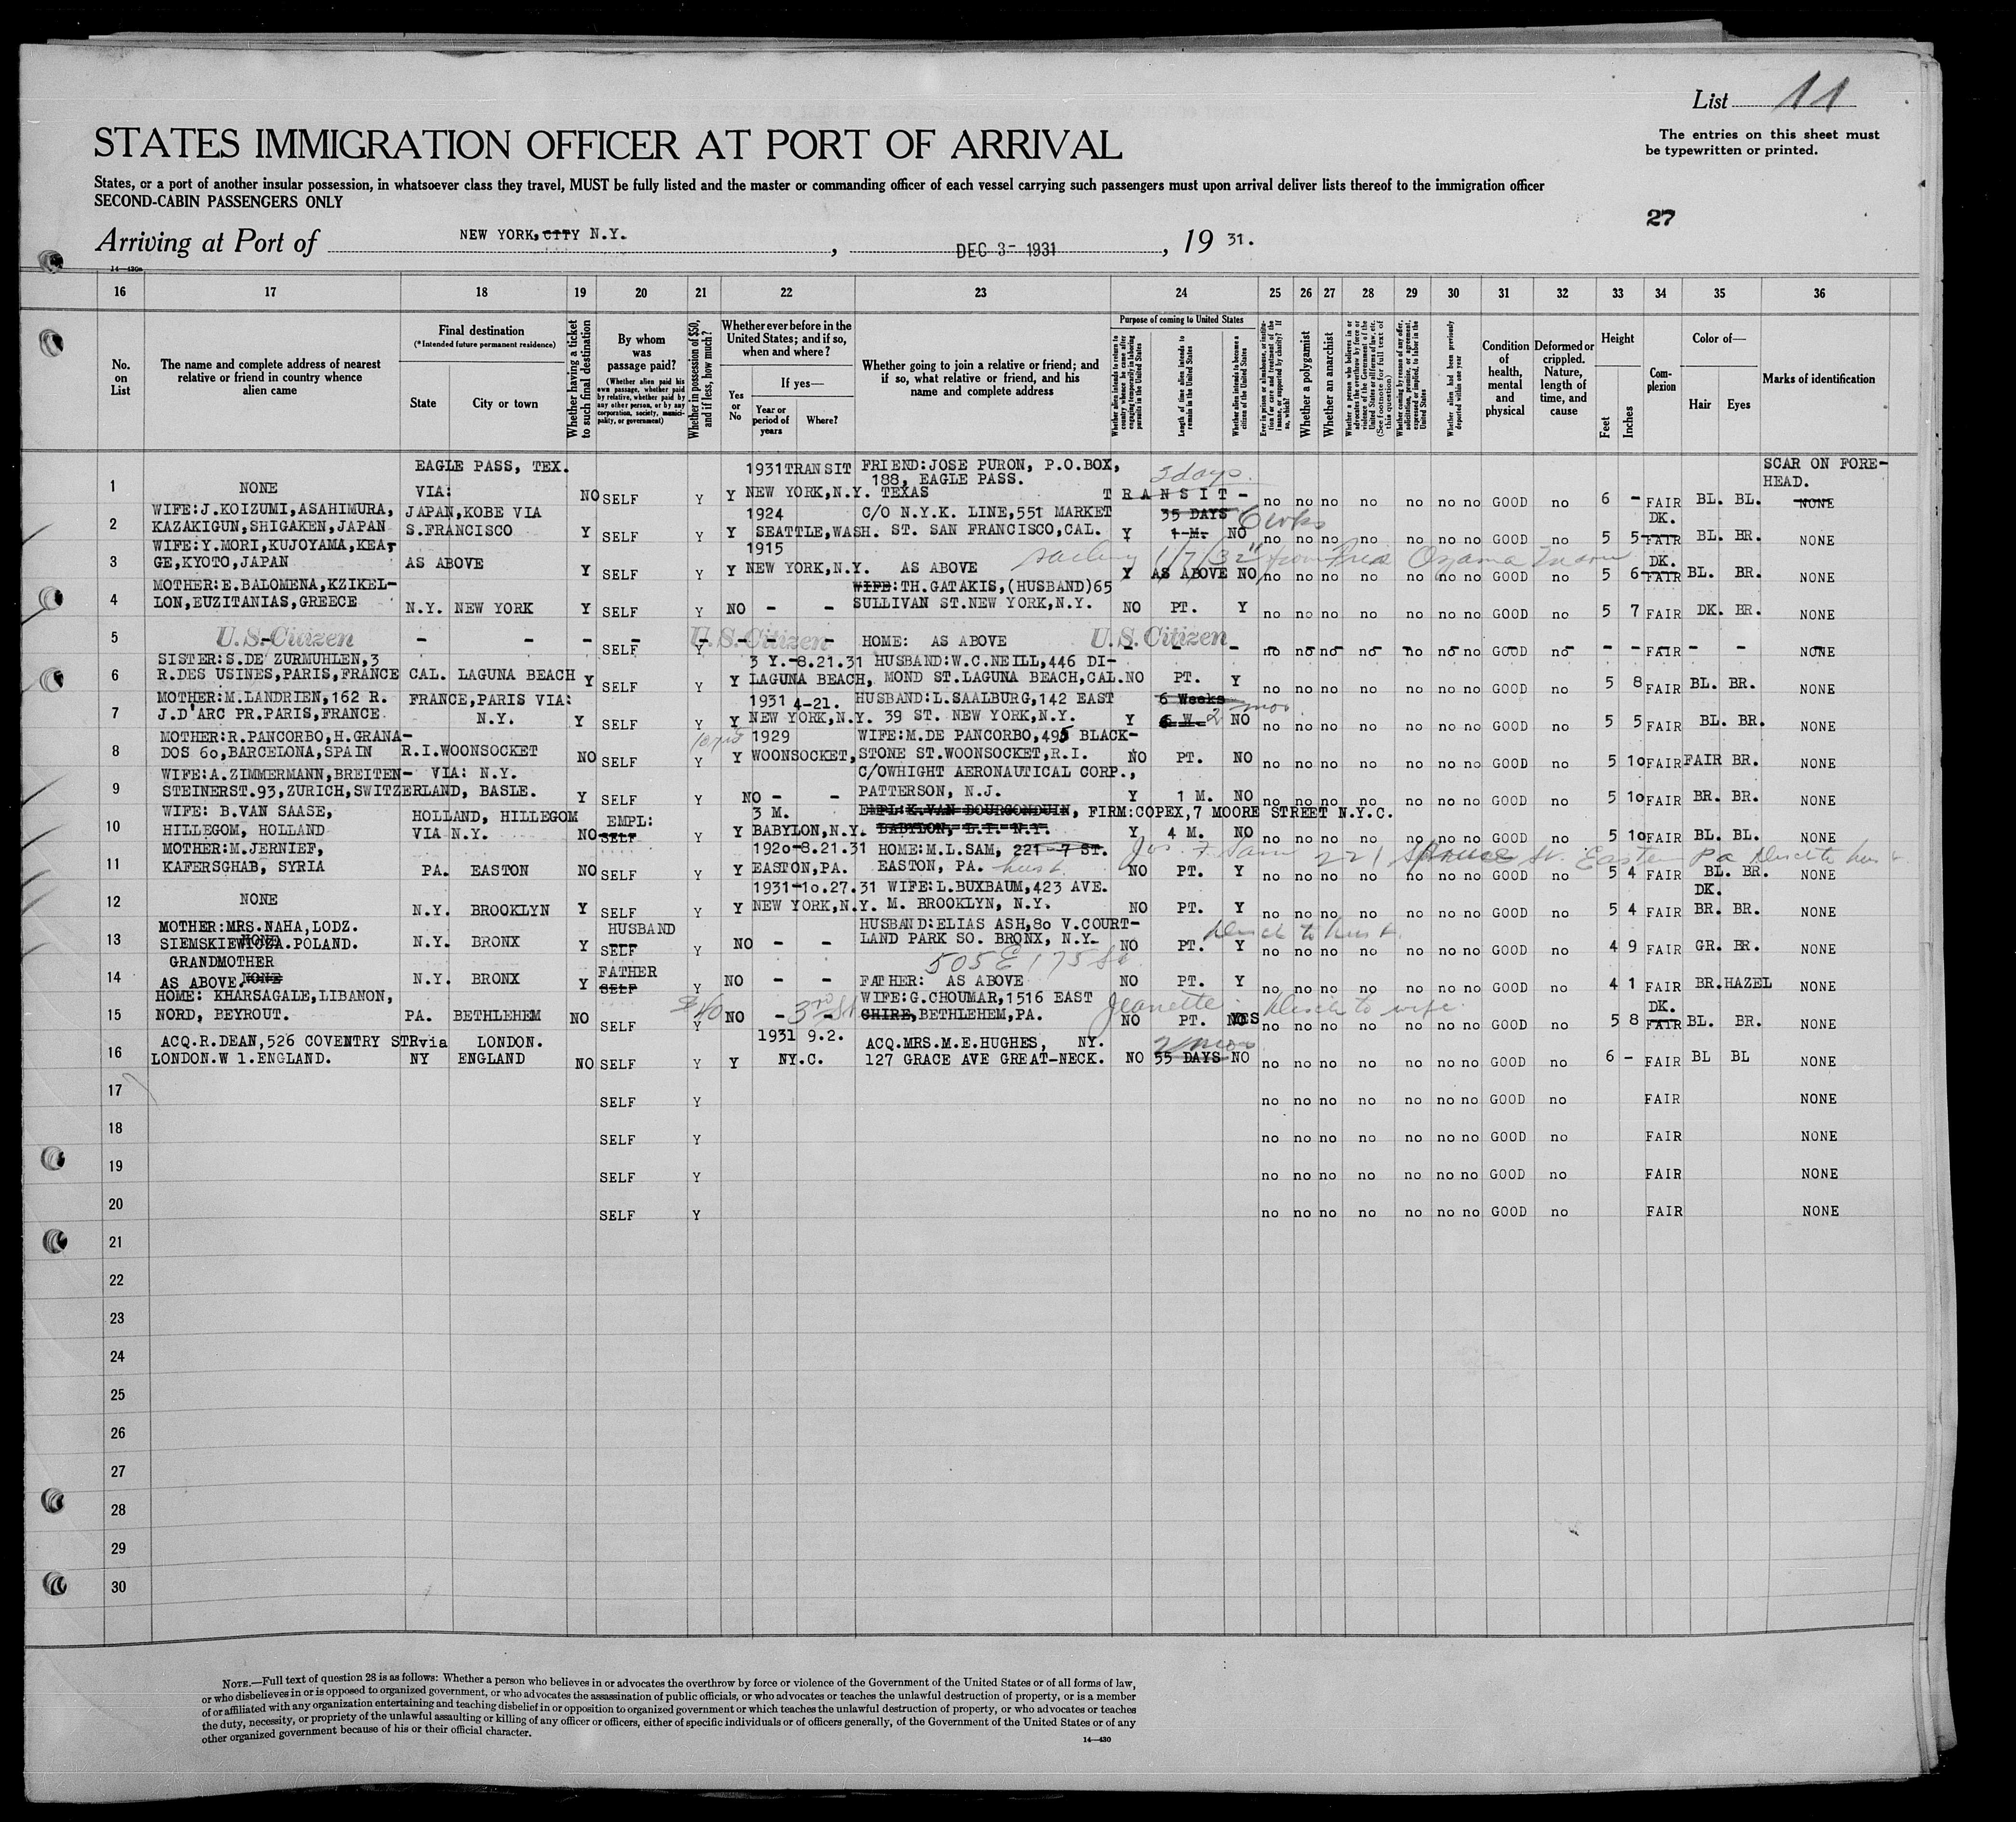 List 11
The entries on this sheet must
be typewritten or printed.
STATES IMMIGRATION OFFICER AT PORT OF ARRIVAL
States, or a port of another insular possession, in whatsoever class they travel, MUST be fully listed and the master or commanding officer of each vessel carrying such passengers must upon arrival deliver lists thereof to the immigration officer
SECOND-CABIN PASSENGERS ONLY
27
Arriving at Port of NEW YORK, CITY N.Y., DEC 3- 1931, 19 31.
14—430a
16 17 18 19 20 21 22 23 24 25 26 27 28 29 30 31 32 33 34 35 36
No. on List
The name and complete address of nearest relative or friend in country whence alien came
Final destination
(*Intended future permanent residence)
State
City or town
Whether having a ticket to such final destination
By whom was passage paid?
(Whether alien paid his own passage, whether paid by relative, whether paid by any other person, or by any corporation, society, municipality, or government)
Whether in possession of $50, and if less, how much?
Whether ever before in the United States; and if so, when and where?
Yes or No
If yes—
Year or period of years
Where?
Whether going to join a relative or friend; and if so, what relative or friend, and his name and complete address
Purpose of coming to United States
Whether alien intends to return to country whence he came after engaging temporarily in laboring pursuits in the United States
Length of time alien intends to remain in the United States
Whether alien intends to become a citizen of the United States
Ever in prison or almshouse, or institution for care and treatment of the insane, or supported by charity? If so, which?
Whether a polygamist
Whether an anarchist
Whether a person who believes in or advocates the overthrow by force or violence of the Government of the United States or all forms of law, etc. (See footnote for full text of this question)
Whether coming by reason of any offer, solicitation, promise, or agreement, expressed or implied, to labor in the United States
Whether alien had been previously deported within one year
Condition of health, mental and physical
Deformed or crippled. Nature, length of time, and cause
Height
Feet
Inches
Complexion
Color of—
Hair
Eyes
Marks of identification
EAGLE PASS, TEX. 1931 TRANSIT FRIEND:JOSE PURON, P.O.BOX, 3 days SCAR ON FORE-
188, EAGLE PASS. HEAD.
1 NONE VIA: NO SELF Y Y NEW YORK,N.Y. TEXAS TRANSIT - no no no no no no no GOOD no 6 - FAIR BL. BL. NONE
WIFE:J.KOIZUMI,ASAHIMURA, JAPAN,KOBE VIA 1924 C/O N.Y.K. LINE,551 MARKET 35 DAYS 6 wks DK.
2 KAZAKIGUN,SHIGAKEN,JAPAN S.FRANCISCO Y SELF Y Y SEATTLE,WASH. ST. SAN FRANCISCO,CAL. Y 1-M. NO no no no no no no no GOOD no 5 5 FAIR BL. BR. NONE
WIFE:Y.MORI,KUJOYAMA,KEA- 1915 1/7/32 from DK.
3 GE,KYOTO,JAPAN AS ABOVE Y SELF Y Y NEW YORK,N.Y. AS ABOVE Y AS ABOVE NO no no no no no no no GOOD no 5 6 FAIR BL. BR. NONE
MOTHER:E.BALOMENA,KZIKEL- WIFE:TH.GATAKIS,(HUSBAND)65
4 LON,EUZITANIAS,GREECE N.Y. NEW YORK Y SELF Y NO - - SULLIVAN ST.NEW YORK,N.Y. NO PT. Y no no no no no no no GOOD no 5 7 FAIR DK. BR. NONE
5 U.S. Citizen - - - SELF Y U.S. Citizen - - HOME: AS ABOVE U.S. Citizen - - - no no no no no no no GOOD no - - FAIR - - NONE
SISTER:S.DE' ZURMUHLEN,3 3 Y.-8.21.31 HUSBAND:W.C.NEILL,446 DI-
6 R.DES USINES,PARIS,FRANCE CAL. LAGUNA BEACH Y SELF Y Y LAGUNA BEACH, MOND ST.LAGUNA BEACH,CAL. NO PT. Y no no no no no no no GOOD no 5 8 FAIR BL. BR. NONE
MOTHER:M.LANDRIEN,162 R. FRANCE,PARIS VIA: 1931 4-21. HUSBAND:L.SAALBURG,142 EAST 6 Weeks
7 J.D'ARC PR.PARIS,FRANCE N.Y. Y SELF Y Y NEW YORK,N.Y. 39 ST. NEW YORK,N.Y. Y 6 W. 2 mos. NO no no no no no no no GOOD no 5 5 FAIR BL. BR. NONE
MOTHER:R.PANCORBO,H.GRANA- 1929 WIFE:M.DE PANCORBO,495 BLACK-
8 DOS 60,BARCELONA,SPAIN R.I.WOONSOCKET NO SELF Y Y WOONSOCKET, STONE ST.WOONSOCKET,R.I. NO PT. NO no no no no no no no GOOD no 5 10 FAIR FAIR BR. NONE
WIFE:A.ZIMMERMANN,BREITEN- VIA: N.Y. C/OWHIGHT AERONAUTICAL CORP.,
9 STEINERST.93,ZURICH,SWITZERLAND, BASLE. Y SELF Y NO - - PATTERSON, N.J. Y 1 M. NO no no no no no no no GOOD no 5 10 FAIR BR. BR. NONE
WIFE: B.VAN SAASE, HOLLAND, HILLEGOM EMPL: 3 M. EMPL:K.VAN BOURGONDUIN, FIRM:COPEX,7 MOORE STREET N.Y.C.
10 HILLEGOM, HOLLAND VIA N.Y. NO SELF Y Y BABYLON,N.Y. BABYLON, L.I. N.Y. Y 4 M. NO no no no no no no no GOOD no 5 10 FAIR BL. BL. NONE
MOTHER:M.JERNIEF, 1920-8.21.31 HOME:M.L.SAM, 221-7 ST. Jos. F. Sam 221 Spruce St. Easton Pa
11 KAFERSGHAB, SYRIA PA. EASTON NO SELF Y Y EASTON,PA. EASTON, PA. husb. NO PT. Y no no no no no no no GOOD no 5 4 FAIR BL. BR. NONE
1931-10.27.31 WIFE:L.BUXBAUM,423 AVE. DK.
12 NONE N.Y. BROOKLYN Y SELF Y Y NEW YORK,N.Y. M. BROOKLYN, N.Y. NO PT. Y no no no no no no no GOOD no 5 4 FAIR BR. BR. NONE
MOTHER:MRS.NAHA,LODZ. HUSBAND HUSBAND:ELIAS ASH,80 V.COURT-
13 SIEMSKIEWICZA.POLAND. NONE N.Y. BRONX Y SELF Y NO - - LAND PARK SO. BRONX, N.Y. NO PT. Y no no no no no no no GOOD no 4 9 FAIR GR. BR. NONE
GRANDMOTHER FATHER 505 E 175 St.
14 AS ABOVE. NONE N.Y. BRONX Y SELF Y NO - - FATHER: AS ABOVE NO PT. Y no no no no no no no GOOD no 4 1 FAIR BR. HAZEL NONE
HOME: KHARSAGALE,LIBANON, $40 3rd St WIFE:G.CHOUMAR,1516 EAST Jeanette to wife DK.
15 NORD, BEYROUT. PA. BETHLEHEM NO SELF Y NO - - GHIRE, BETHLEHEM,PA. NO PT. NO YES no no no no no no no GOOD no 5 8 FAIR BL. BR. NONE
ACQ.R.DEAN,526 COVENTRY STR via LONDON. 1931 9.2. ACQ.MRS.M.E.HUGHES, NY. 2 mos
16 LONDON.W 1.ENGLAND. NY ENGLAND NO SELF Y Y NY.C. 127 GRACE AVE GREAT-NECK. NO 55 DAYS NO no no no no no no no GOOD no 6 - FAIR BL BL NONE
17 SELF Y no no no no no no no GOOD no FAIR NONE
18 SELF Y no no no no no no no GOOD no FAIR NONE
19 SELF Y no no no no no no no GOOD no FAIR NONE
20 SELF Y no no no no no no no GOOD no FAIR NONE
21
22
23
24
25
26
27
28
29
30
NOTE.—Full text of question 28 is as follows: Whether a person who believes in or advocates the overthrow by force or violence of the Government of the United States or of all forms of law,
or who disbelieves in or is opposed to organized government, or who advocates the assassination of public officials, or who advocates or teaches the unlawful destruction of property, or is a member
of or affiliated with any organization entertaining and teaching disbelief in or opposition to organized government or which teaches the unlawful destruction of property, or who advocates or teaches
the duty, necessity, or propriety of the unlawful assaulting or killing of any officer or officers, either of specific individuals or of officers generally, of the Government of the United States or of any
other organized government because of his or their official character.
14—430